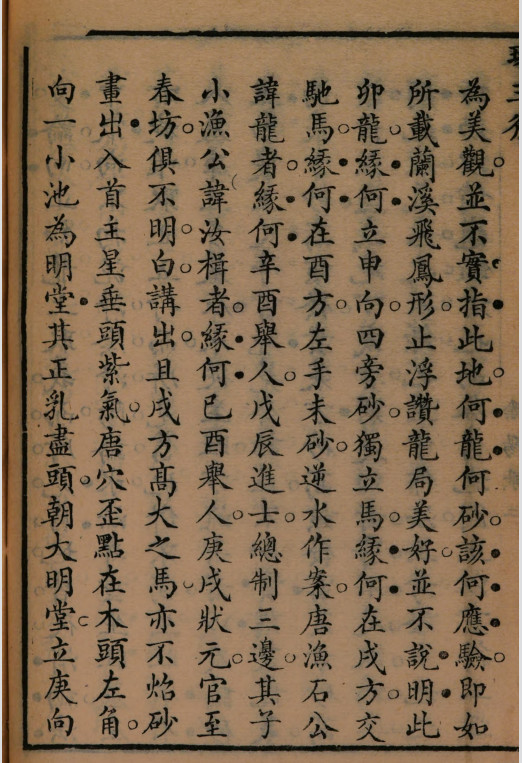 為美觀並不實指此地何龍何砂該何應驗即如
所載蘭溪飛鳳形止浮讚龍局美好並不說明此
卯龍緣何立申向四旁砂獨立馬緣何在戌方交
馳馬緣何在酉方左手未砂逆水作案唐漁石公
諱龍者緣何辛酉舉人戊辰進士總制三邊其子
小漁公諱汝楫者緣何己酉舉人庚戌狀元官至
春坊俱不明白講出且戌方高大之馬亦不焰砂
畫出入首主星垂頭紫氣唐穴歪點在木頭左角
向一小池為明堂其正乳盡頭朝大明堂立庚向